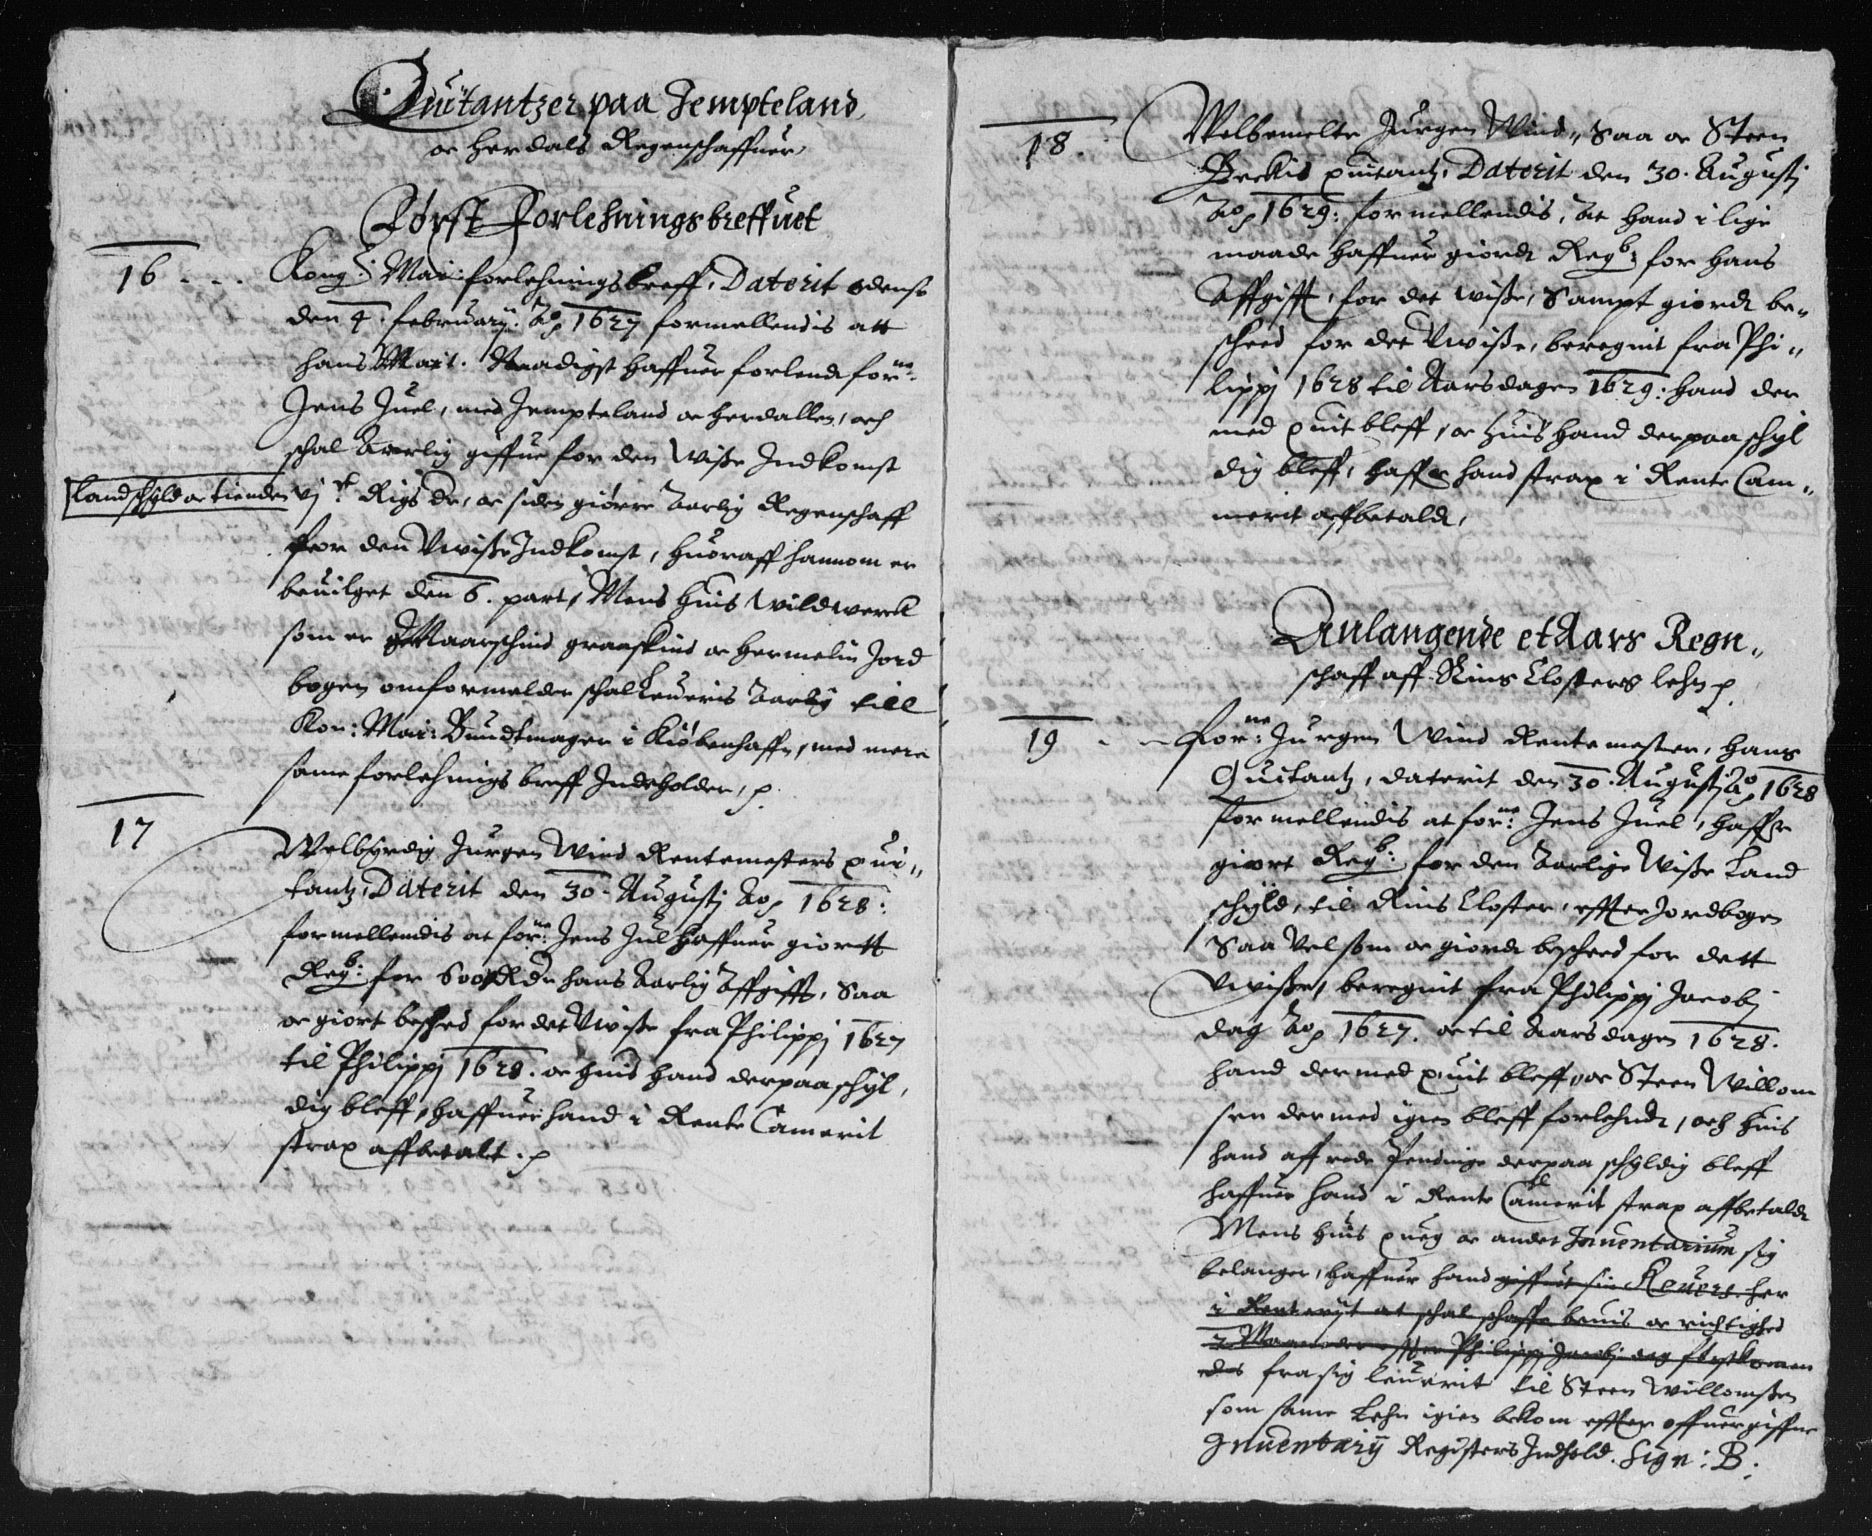 Quitantzer paa Jempteland
oc Herdals Regenschaffuer
Først Forlehningsbreffuet
16 Kong: Mai: forlehningsbreff, Daterit Odense
den 4. february: Ao 1627 formellendis att
hans Mait. Naadigst haffuer forlendt forne:
Jens Juel, med Jempteland oc Herdallen, och
schal Aarlig giffue for den Wisse Indkomst
landschyld oc tienden vj c Rigs dr, oc siden giørre Aarlig Regenschaff
for den Vwisse Indkomst, huoraff hannom er
beuilget den 6. part, Mens huis Wildwerck
som er Maarschind graaskind oc Hermelin Jord
bogen omformelder schal Leueris Aarlig till
Kon: Mai: Bundtmager i Kiøbenhaffn, med mere
same forlehnings breff Indeholder, p.
17
Welbyrdig Jurgen Wind Rentemesters qui-
tantz, Daterit den 30. Augustj Ao 1628:
formellendis at forne: Jens Juel haffuer giørtt
Regb: for 600 Rdr hans Aarlig Affgifft, saa
oc giort besched for det Vwisse fra Philippj 1627
til Philippj 1628. oc huis hand derpaa schyl,
dig bleff, haffuer hand i Rente Camerit
strax affbetalt. p
18. Welbemelte Jurgen Wind, saa oc Steen
Beckis quitantz, Daterit den 30. Augustj
Ao 1629: formellendis, At hand i lige
maade haffuer giordt Regb: for hans
Affgifft, for det wisse, Sampt giordt be-
scheed for det Vwisse, beregnit fra Phi-
lippj 1628 til Aarsdagen 1629: hand der
med quit bleff, oc huis hand derpaa schyl
dig bleff, haffr hand strax i Rente Cam-
merit affbetaldt,
Anlangende et Aars Regn-
schaff aff Rins Closters lehn p.
19 Forne: Jurgen Wind Rentemester, hans
Quitantz, daterit den 30. Augustj Ao 1628
formellendis at forne: Jens Juel, haffr
giørt Regb: for den Aarlige Wisse Land
schyld, til Rins Closter, effter Jordbogen
saa vel som oc giordt bescheed for dett
Vwisse, beregnit fra Philippj Jacobj
dag Ao 1627. oc til Aarsdagen 1628.
hand dermed quit bleff, oc Steen Willom
sen dermed igien bleff forlehndt, och huis
hand aff rede Pendinge derpaa schyldig bleff
haffuer hand i Rente Camerit strax affbetaldt
Mens huis queg oc andet Inuentarium sig
belanger, haffuer hand giffuet sin Reuers her
i Renteriet at schal schaffe beuis oc richtighed
Maaneder effter Philippj Jacobj dag
fra sig leuerit til Steen Willomssen
som same Lehn igien bekom effter offuergiffne
Inuentarij Registers Indhold. Sign: B: